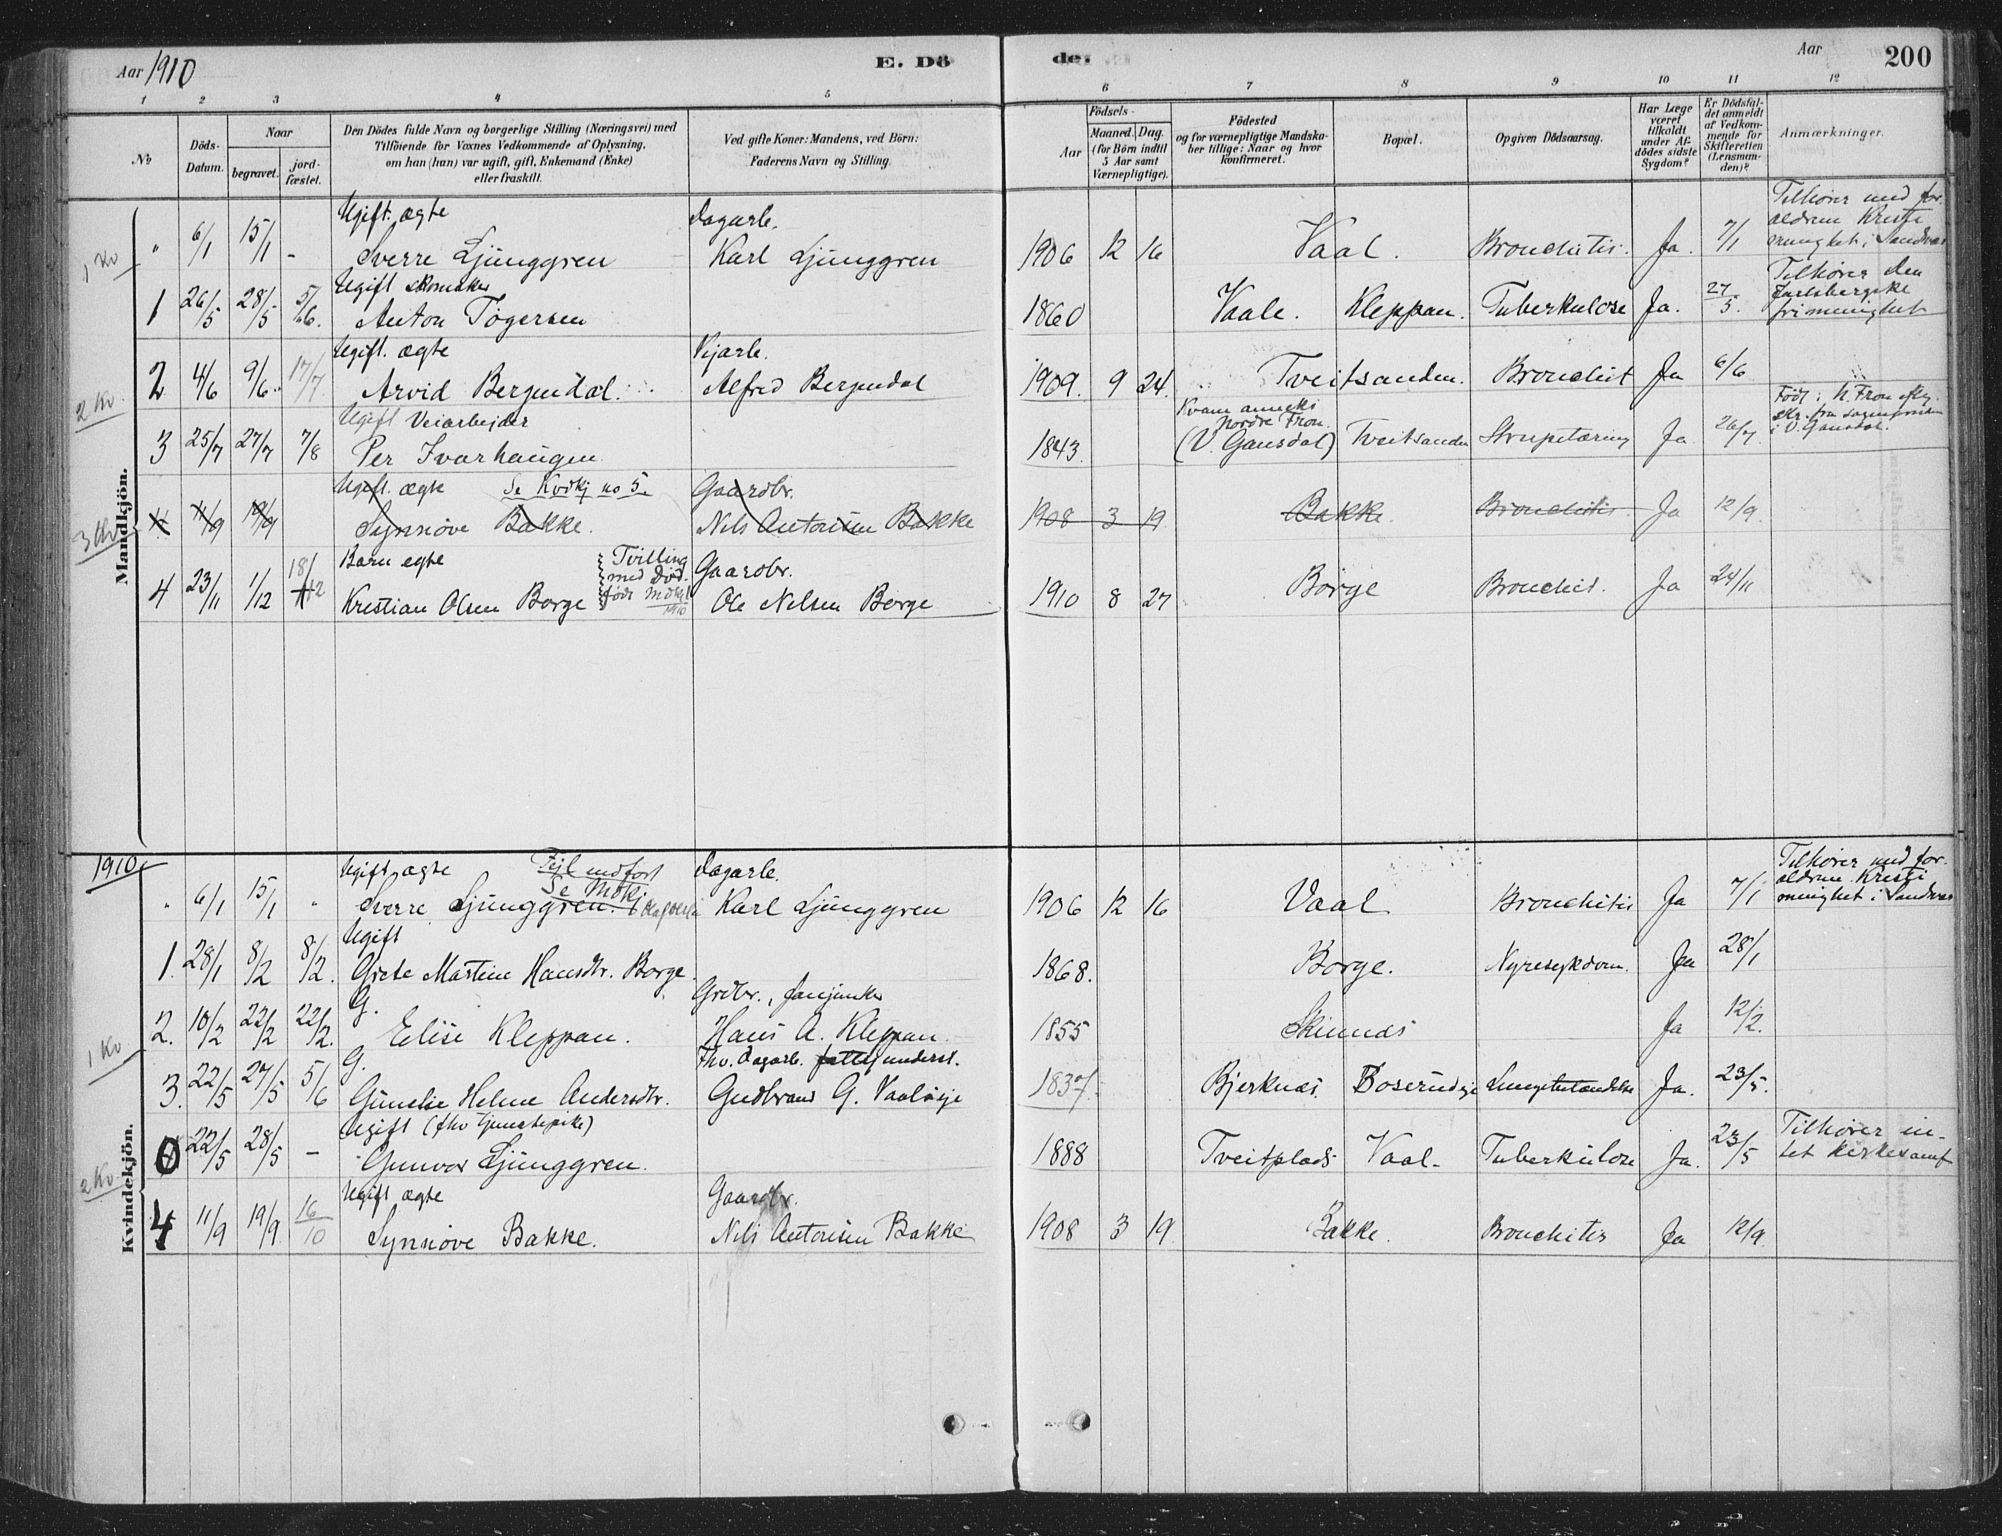 Aar 1910 E. Dö
de. Aar 200
1 2 3 4 5 6 7 8 9 10 11 12
No
Döds-Datum.
Naar
begravet.
jord-fæstet.
Den Dödes fulde Navn og borgerlige Stilling (Næringsvei) med
Tilföiende for Voxnes Vedkommende af Oplysning,
om han (hun) var ugift, gift, Enkemand (Enke)
eller fraskilt.
Ved gifte Koner: Mandens, ved Börn:
Faderens Navn og Stilling.
Födsels-
Aar
Maaned. Dag.
(for Börn indtil
5 Aar samt
Værnepligtige).
Födested
og for værnepligtige Mandska-
ber tillige: Naar og hvor
konfirmeret.
Bopæl.
Opgiven Dödsaarsag.
Har Læge
været
tilkaldt
under Af-
dödes sidste
Sygdom?
Er Dödsfal-
det anmeldt
af Vedkom-
mende for
Skifteretten
(Lensman-
den)?
Anmærkninger.
Mandkjön.
1 Kv
Ugift. ægte Dagarb. Tilhører med for-
ældrene Kristi
" 6/1 15/1 - Sverre Ljunggren Karl Ljunggren 1906 12 16 Vaal. Bronchitis. Ja. 7/1 menighet i Sandvær
Ugift skomaker Tilhører Den
Jarlsbergske
1 26/5 28/5 5/6. Anton Togersen 1860 Vaale. Kleppan. Tuberkulose Ja. 27/5. frimenighet
Ugift. ægte
2 4/6 9/6. 17/7 Arvid Bergendal. Alfred Bergendal 1909. 9 24. Tveitsanden. Bronchit Ja 6/6
2 Kv.
Ugift Veiarbejder Kvam anneks Født i N. Fron
nordre Fron.
3 25/7 27/7 7/8 Per Ivarhaugen 1843. Tveitsanden Ja 26/7
Ugift. ægte Se Kvdkj no 5. Gaardbr.
11/9 19/9 Synnöve Bakke. Nils Antonsen Bakke 1908 3 19 Bakke. Bronchitis Ja 12/9.
3 Kv
Barn egte Tvilling Gaardbr.
med Död-
4 23/11 1/12 18/12 Kristian Olsen Borge født Mdkj Ole Nilsen Borge 1910 8 27 Börge Bronchit. Ja 24/11
1910
Kvindekjön.
Ugift ægte Fejl indfort Dagarb. Tilhører med for-
Se Mdkj. ældrene Kristi
" 6/1 15/1 " Sverre Ljunggren. Karl Ljunggren 1906 12 16 Vaal Bronchitis Ja 7/1 menighet i Sandvær
Ugift
1. 28/1 8/2 8/2. Grete Martine Hansdtr. Borge. 1868. Borge. Nyresykdom. Ja 28/1
G. Grdbr.,
2. 10/2 22/2 22/2. Elise Kleppan. Hans A. Kleppan. 1855 Skinnes Ja 12/2.
1 Kv
G. Fhv. dagarb. fattigunderst.
3. 22/5 27/5 5/6 Gunelie Helene Andersdtr. Gudbrand G. Vaalöeje 1837 Bjerknæs. Ja. 23/5.
Ugift (fhv tjenestepike) Tilhører in-
0 22/5 28/5 - Gunvor Ljunggren. 1888 Tveitplads Vaal. Tuberkulose Ja. 23/5 tet kirkesamf
2 Kv.
Ugift ægte Gaardbr.
4 11/9 19/9 16/10 Synnöve Bakke. Nils Antonsen Bakke 1908 3 19. Bakke. Bronchites Ja 12/9.